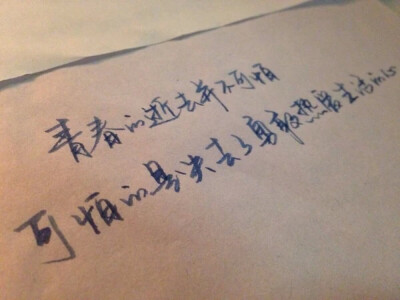 青春的逝去并不可怕
可怕的是失去了勇敢热爱生活的心